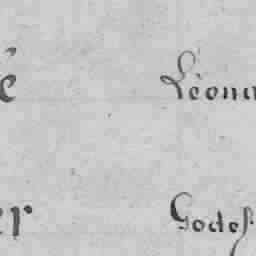 é Léona
er Godef